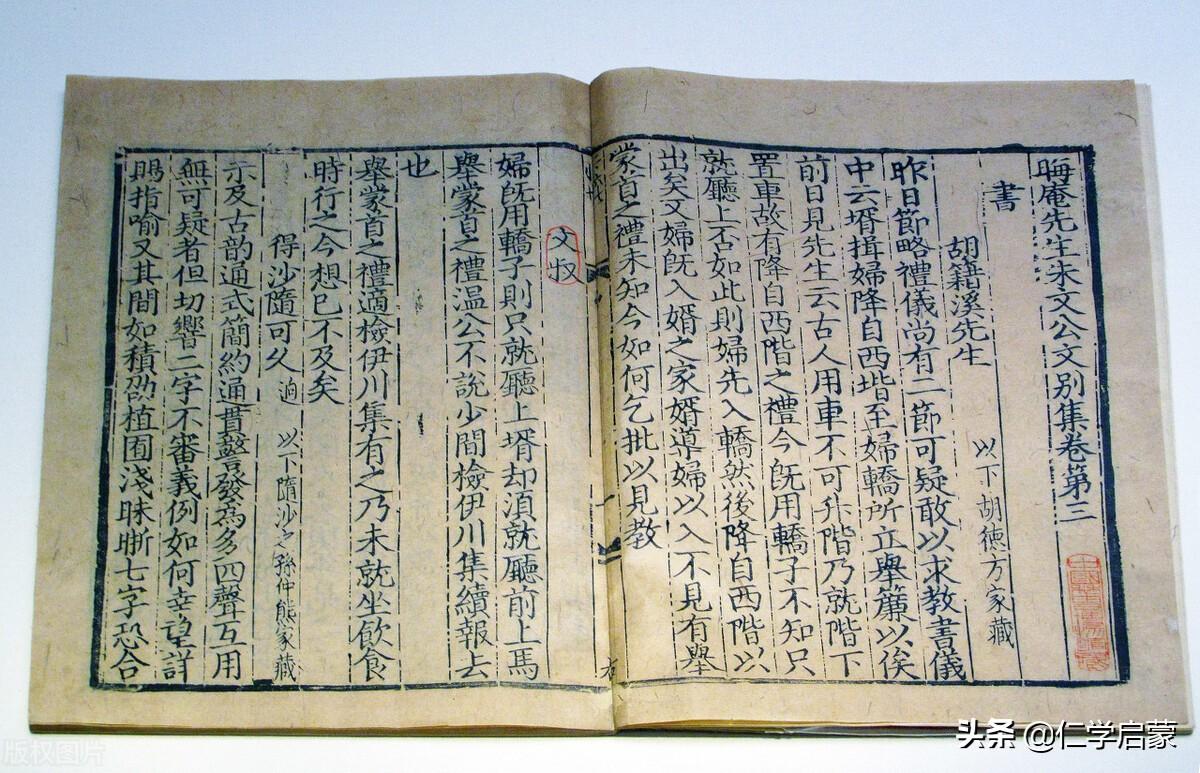 晦庵先生朱文公文別集卷第三
書
胡籍溪先生 以下胡德方家藏
昨日節略禮儀尚有二節可疑敢以求教書儀
中云壻揖婦降自西堦至婦轎所立舉簾以俟
前日見先生云古人用車不可升階乃就階下
置車故有降自西階之禮今旣用轎子不知只
就廳上否如此則婦先入轎然後降自西階以
出矣又婦旣入壻之家壻導婦以入不見有舉
蒙首之禮未知今如何乞批以見教
婦旣用轎子則只就廳上壻却湏就廳前上馬
舉蒙首之禮溫公不說少間檢伊川集續報去
也
舉蒙首之禮適檢伊川集有之乃未就坐飲食
時行之今想已不及矣
得沙隨可久 迥 以下隋沙之孫仲熊家藏
示及古韵通式簡約通貫警發為多四聲互用
無可疑者但切響二字不審義例如何幸望詳
賜指喻又其間如積卲植囿淺昧晣七字恐合
头条 @仁学启蒙
版权图片